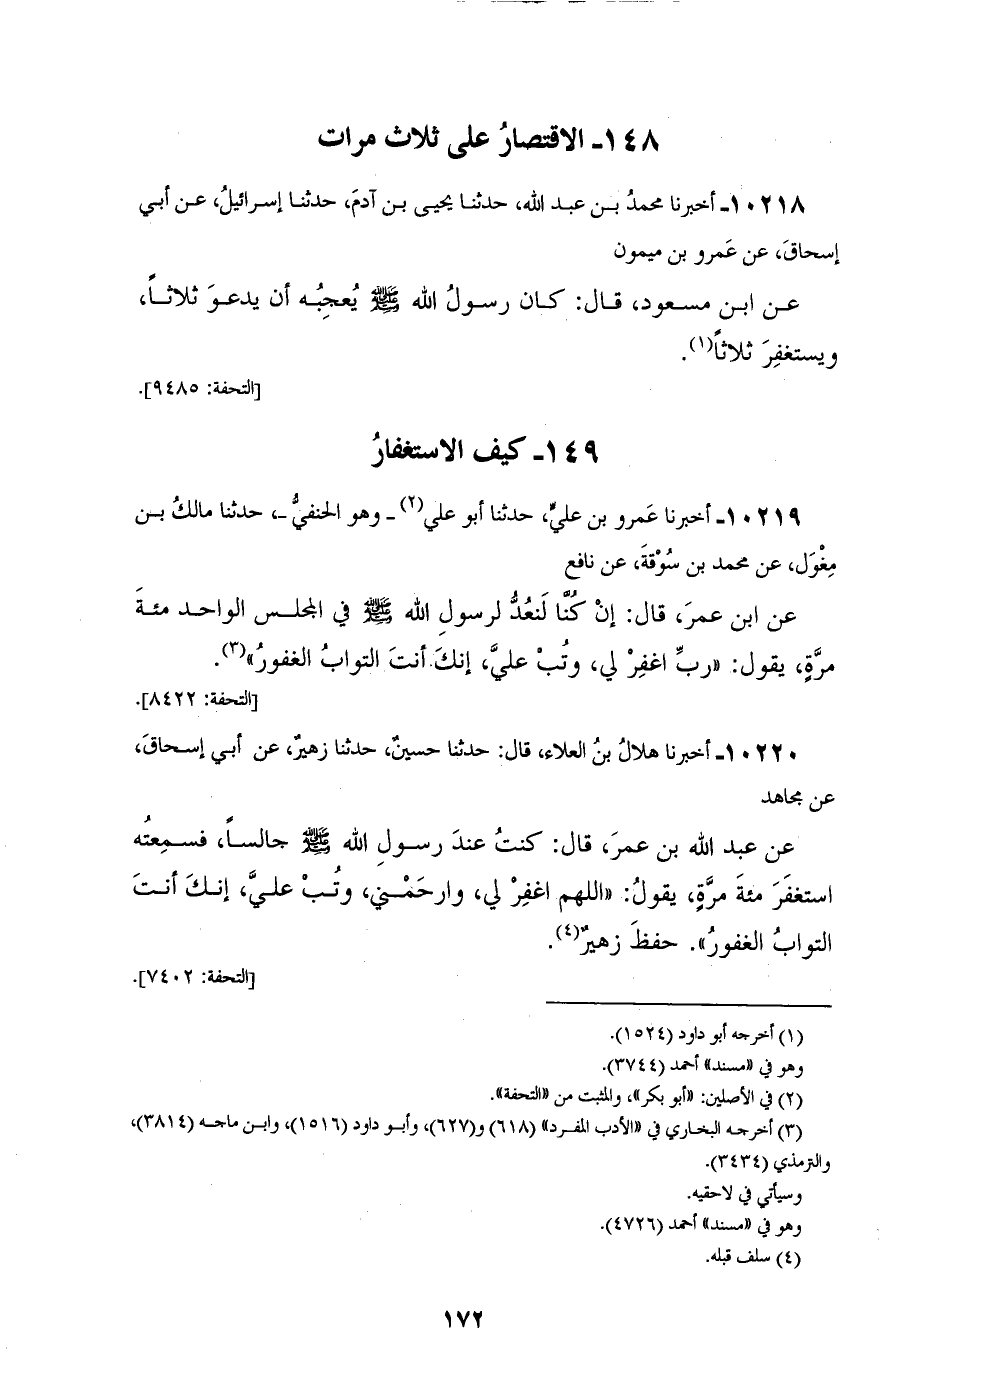 ١٤٨ـ الاقتصارُ على ثلاث مرات
١٠٢١٨ـ أخبرنا محمدُ بـن عبـد الله، حدثنـا يحيـى بـن آدمَ، حدثنـا إسـرائيلُ، عـن أبـي
إسحاقَ، عن عَمرو بن ميمون
عـن ابـن مسـعود، قـال: كـان رسـولُ الله ﷺ يُعجِبُـه أن يدعـوَ ثلاثـاً،
ويستغفِرَ ثلاثاً(١).
[التحفة: ٩٤٨٥].
١٤٩ـ كيف الاستغفارُ
١٠٢١٩ـ أخبرنا عَمرو بن عليٍّ، حدثنا أبو علي(٢)ـ وهو الحنفيُّ ـ، حدثنا مالكُ بـن
مِغْوَل، عن محمد بن سُوْقةَ، عن نافع
عن ابن عمرَ، قال: إنْ كُنَّا لَنعُدُّ لرسولِ الله ﷺ في المجلـس الواحـد مئـةَ
مرَّةٍ، يقول: «ربِّ اغفِرْ لي، وتُبْ عليَّ، إنكَ أنتَ التوابُ الغفورُ»(٣).
[التحفة: ٨٤٢٢].
١٠٢٢٠ـ أخبرنا هلالُ بنُ العلاء، قال: حدثنا حسينٌ، حدثنا زهيرٌ، عن أبـي إسـحاقَ،
عن مجاهد
عن عبد الله بن عمرَ، قال: كنتُ عندَ رسـولِ الله ﷺ جالسـاً، فسـمِعتُه
استغفَرَ مئةَ مرَّةٍ، يقولُ: «اللهم اغفِرْ لي، وارحَمْـني، وتُـبْ علـيَّ، إنـكَ أنـتَ
التوابُ الغفورُ». حفظَ زهيرٌ(٤).
[التحفة: ٧٤٠٢].
(١) أخرجه أبو داود (١٥٢٤).
وهو في «مسند» أحمد (٣٧٤٤).
(٢) في الأصلين: «أبو بكر»، والمثبت من «التحفة».
(٣) أخرجـه البخـاري في «الأدب المفـرد» (٦١٨) و(٦٢٧)، وأبـو داود (١٥١٦)، وابـن ماجـه (٣٨١٤)،
والترمذي (٣٤٣٤).
وسيأتي في لاحقيه.
وهو في «مسند» أحمد (٤٧٢٦).
(٤) سلف قبله.
١٧٢